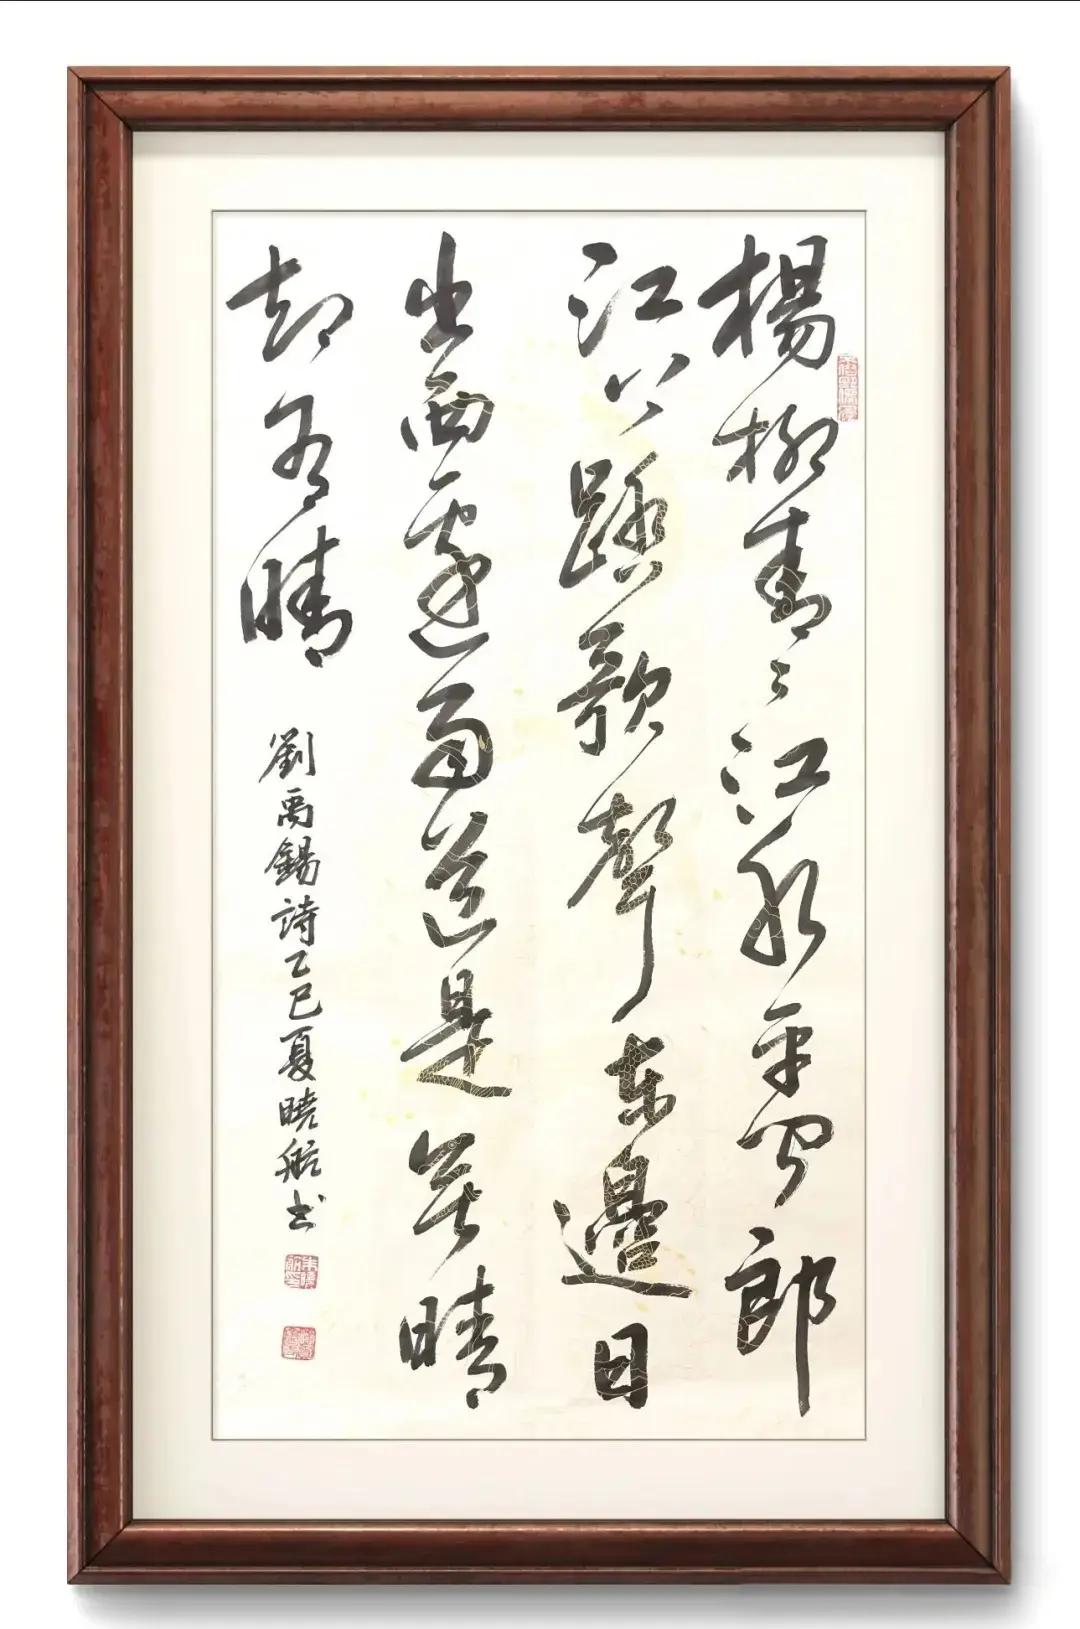 楊柳青〻江水平聞郎
江上踏歌聲東邊日
出西邊雨道是無晴
却有晴
劉禹錫詩乙巳夏曉航书